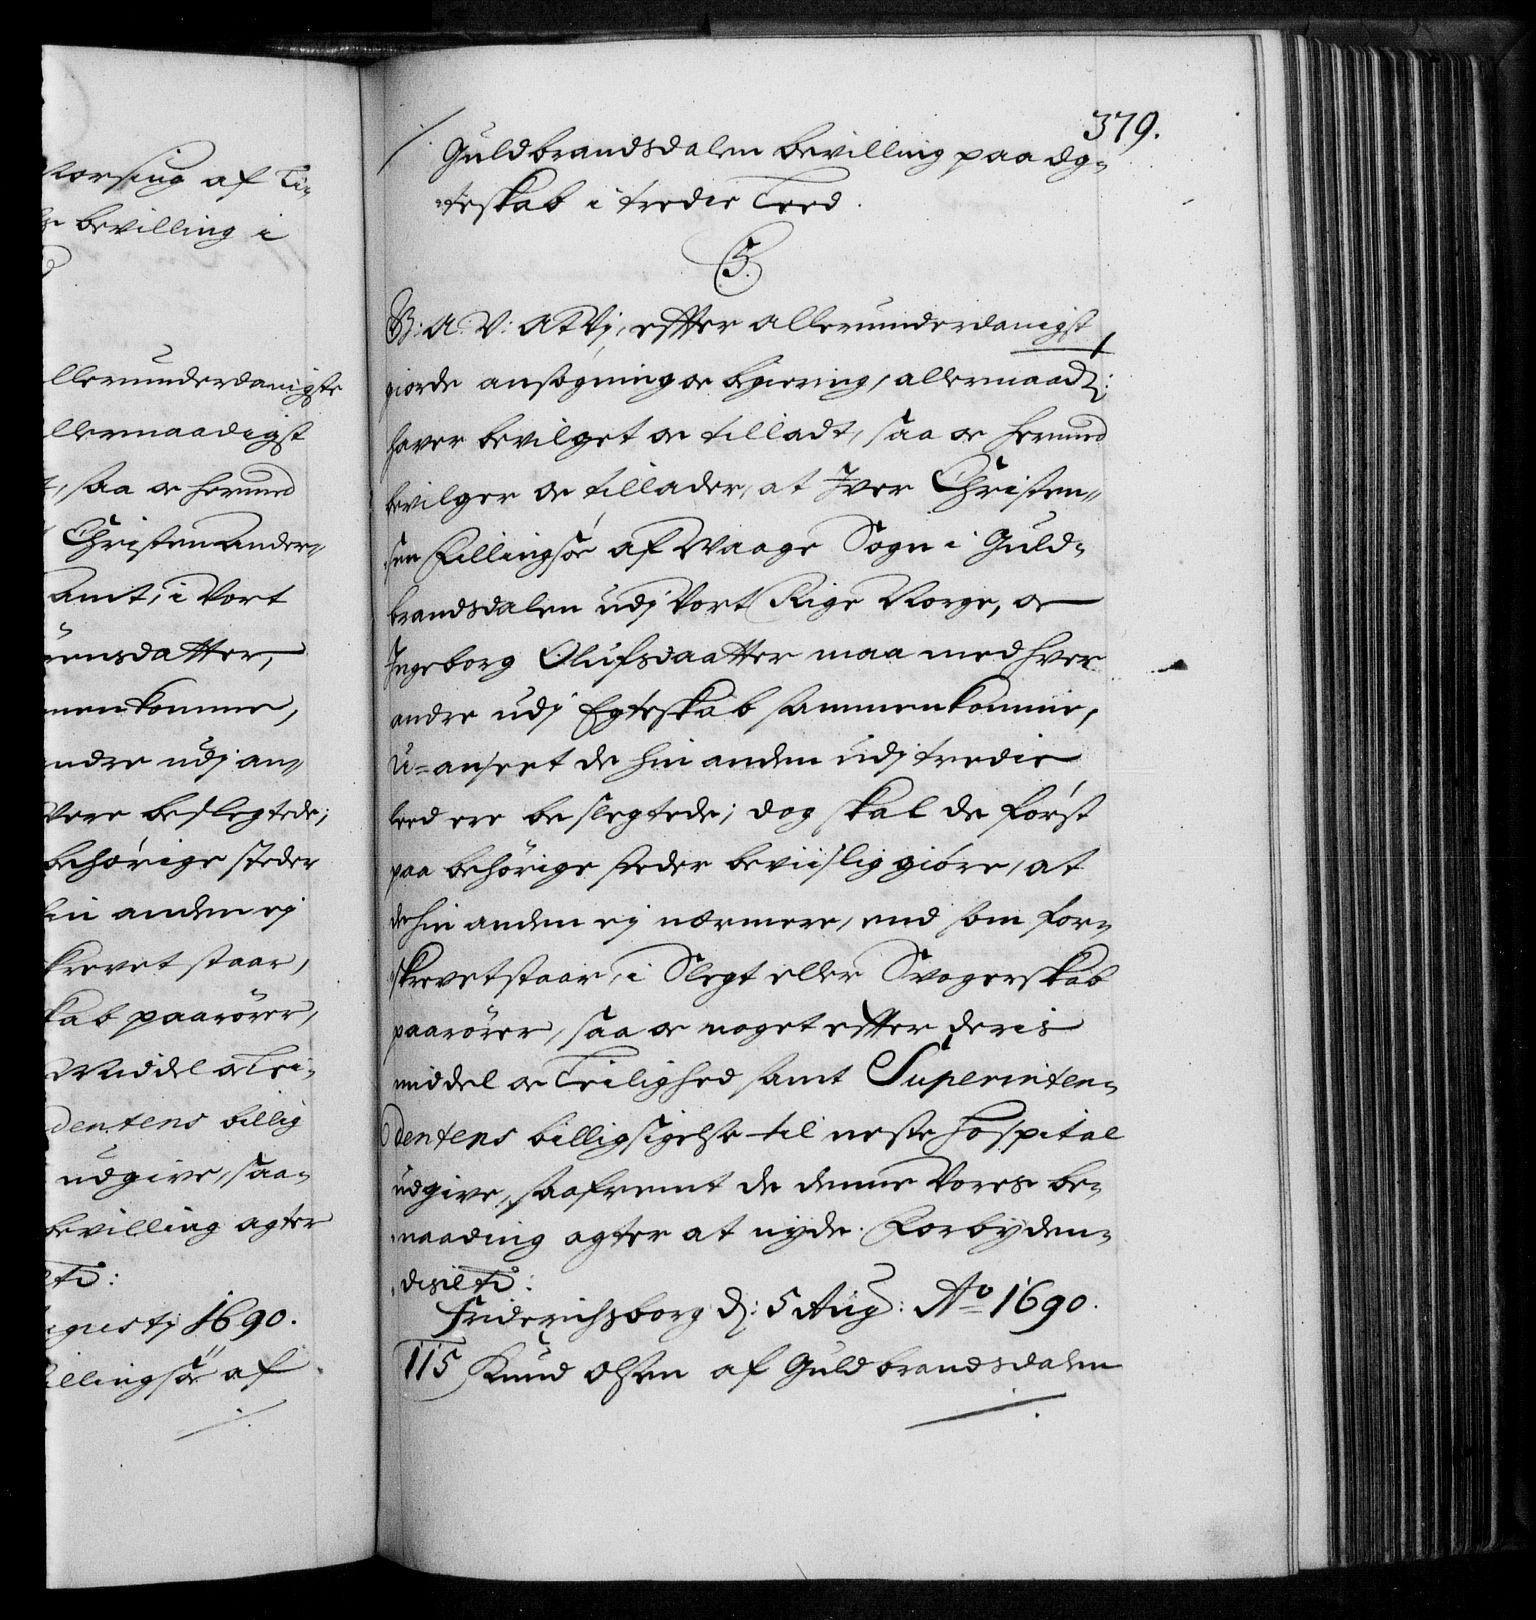 torsing af Ti-
bevilling i
llerunderdanigste
llernaadigst
t, saa oc hermed
Christen Ander-
Amt, i Vort
rensdatter,
menkomme,
ndre udj an-
vere beslegtede;
behörige steder
hin anden ej
krevet staar,
kab paarörer,
Middel oc Lei-
dentens billig
udgive, saa-
bevilling agter
etc:
ugustj 1690.
illingsöe af
379.
Guldbrandsdalen bevilling paa Eg-
teskab i tredie Leed.
C5.
G: A V: At Vj, effter allerunderdanigst
giorde ansögning oc begiering, allernaad:
hafver bevilget oc tilladt, saa oc hermed
bevilger oc tillader, at Iver Christen-
sen Fillingsöe af Waage Sogn i Guld-
brandsdalen udj Vort Rige Norge, oc
Ingeborg Olufsdaatter maa med hver
andre udj Egteskab sammenkomme,
u-anseet de hin anden udj tredie
leed ere beslegtede; dog skal de först
paa behörige steder beviislig giöre, at
de hin anden ej nærmere, end som for-
skrevet staar, i Slegt eller Svogerskab
paarörer, saa oc noget effter deris
middel oc Leilighed samt Superinten-
dentens billigsigelse til neste Hospital
udgive, saafremt de denne Vores be-
naading agter at nyde. Forbyden-
des etc:
Friderichsborg d: 5 Aug: Ao 1690.
115 Knud Olsen af Guldbrandsdalen